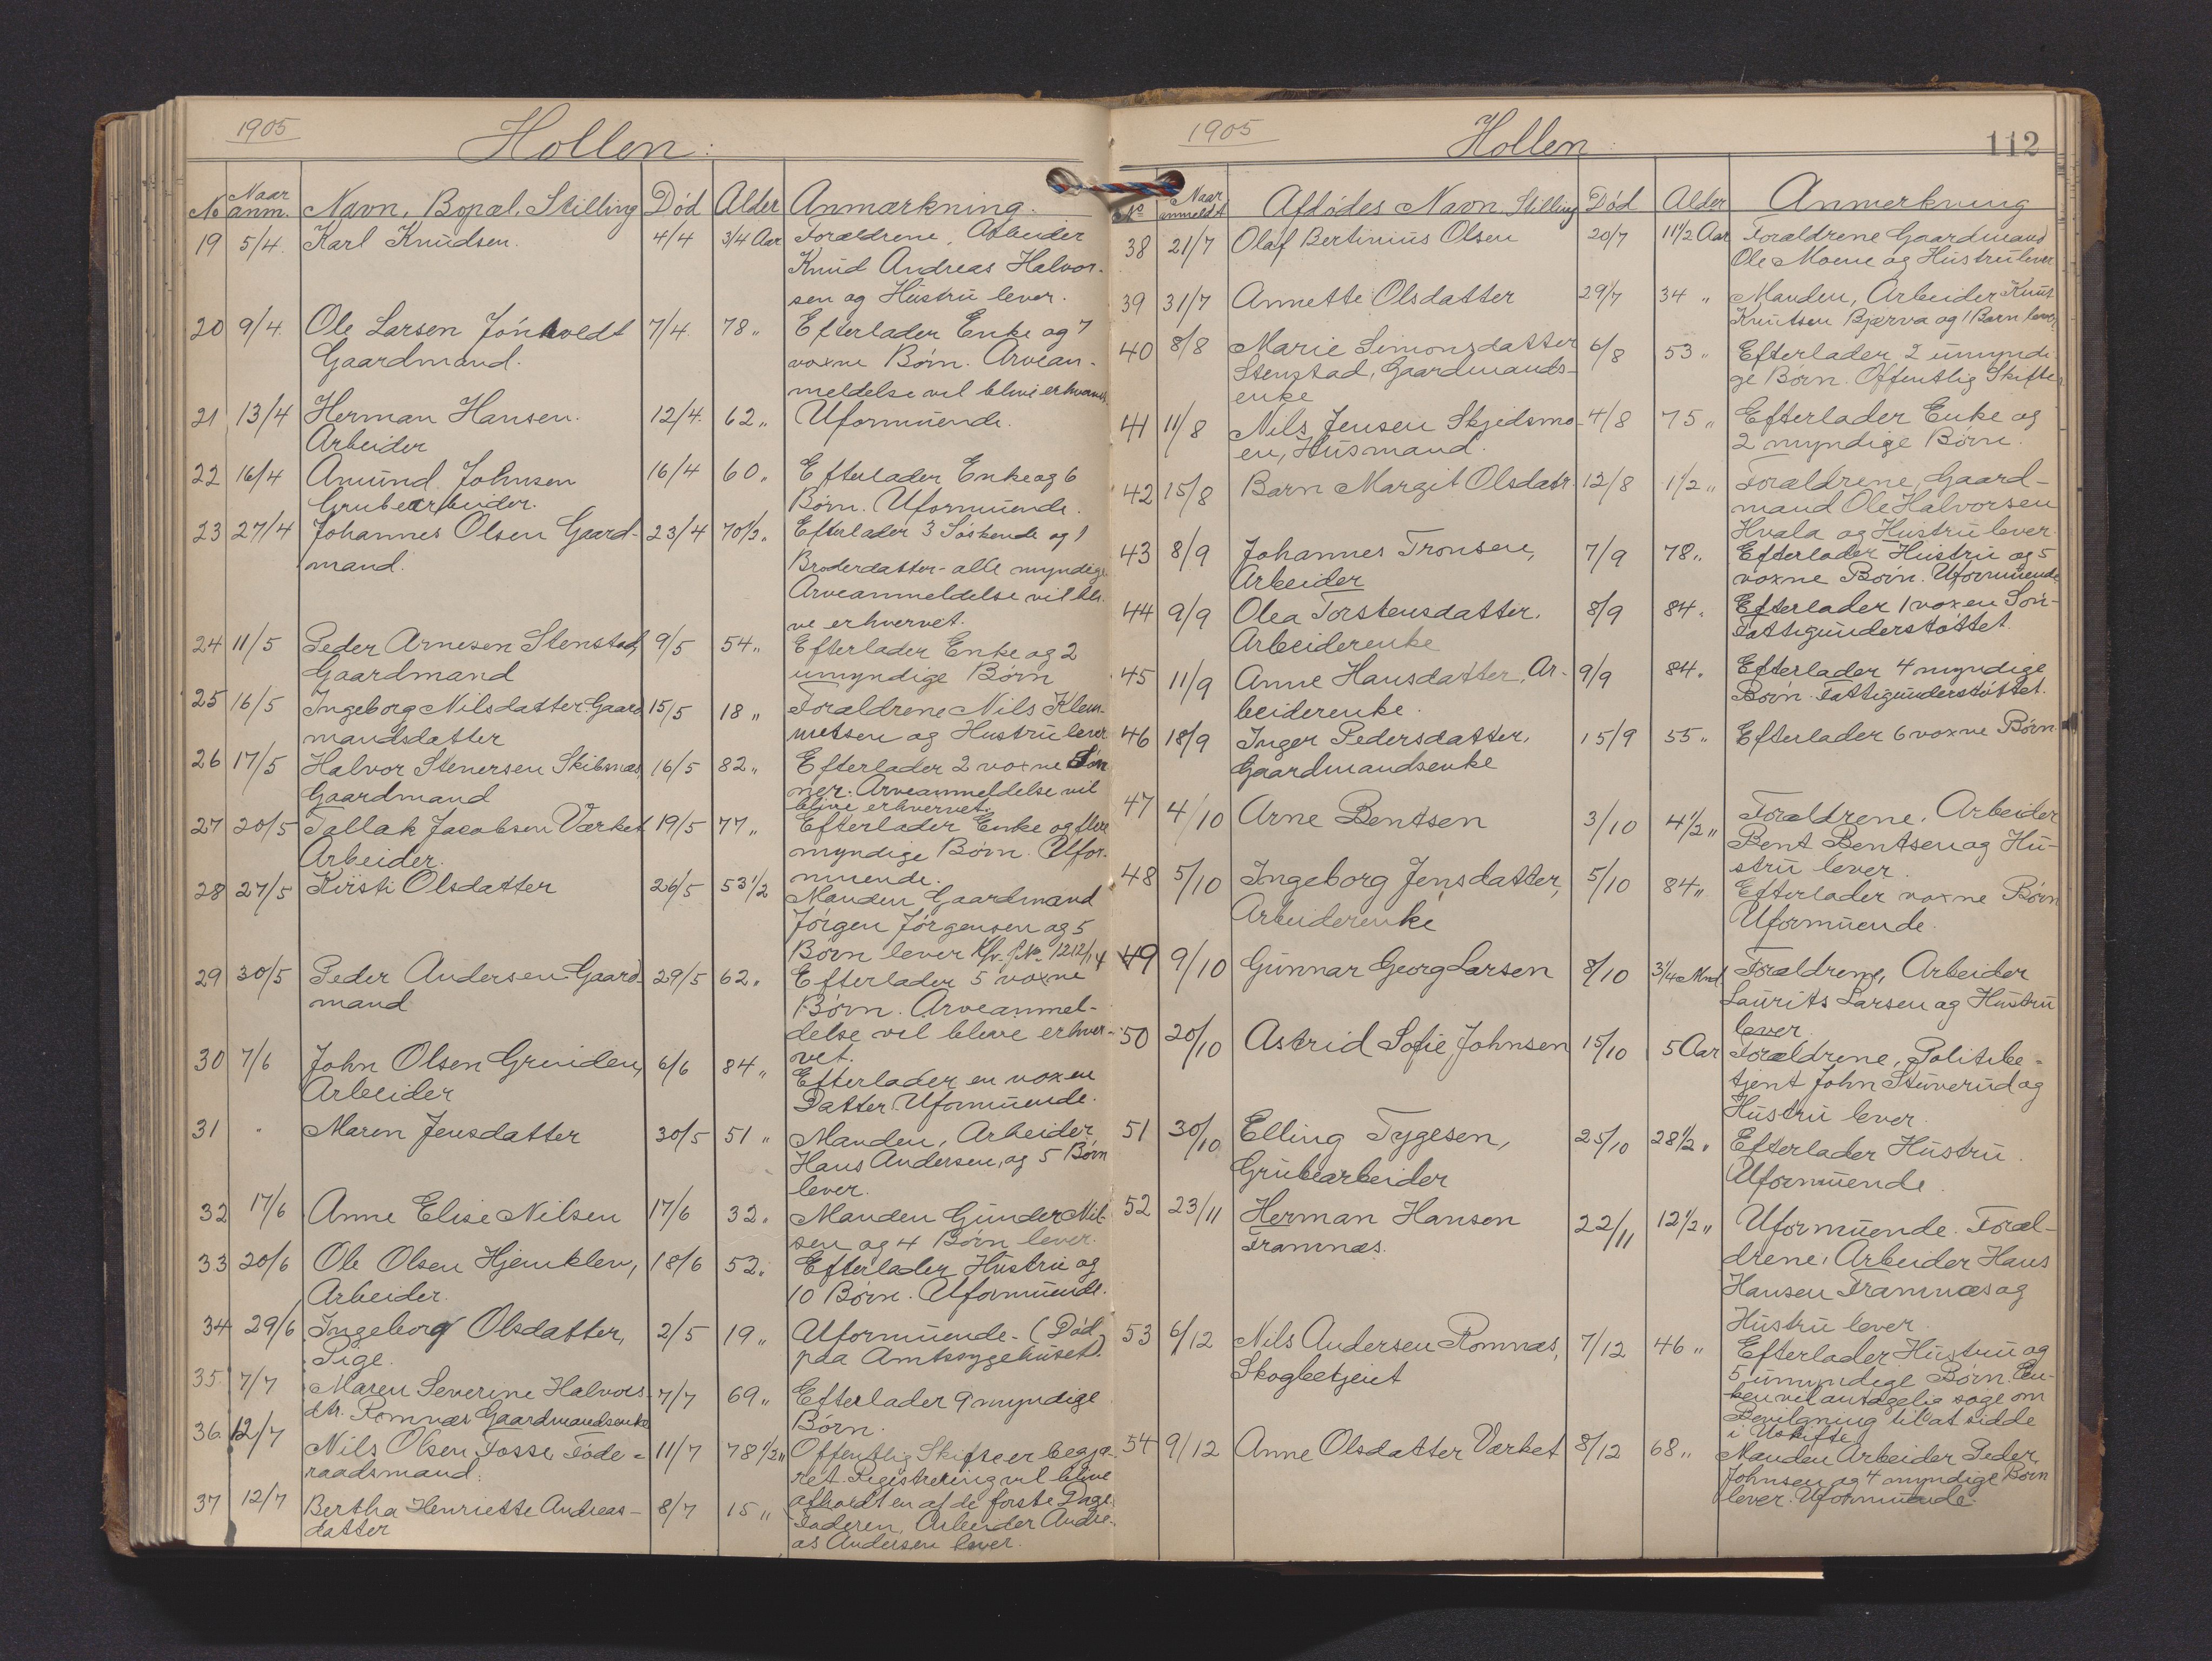 1905
Hollen:
No Naar anm. Navn, Bopæl, Stilling Død Alder Anmærkning.
19 5/4 Karl Knudsen. 4/4 3/4 Aar Forældrene, Arbeider
Knud Andreas Halvor-
sen og Hustru lever.
20 9/4 Ole Larsen Jónholdt 7/4 78 " Efterlader Enke og 7
Gaardmand. voxne Børn. Arvean-
meldelse vil blive erhvervet.
21 13/4 Herman Hansen. 12/4 62 " Uformuende.
Arbeider
22 16/4 Amund Johnsen 16/4 60 " Efterlader Enke og 6
Grubearbeider. Børn. Uformuende.
23 27/4 Johannes Olsen Gaard- 23/4 70 1/2 " Efterlader 3 Søskende og 1
mand. Broderdatter - alle myndige
Arveanmeldelse vil bli-
ve erhvervet.
24 11/5 Peder Arnesen Stenstad, 9/5 54 " Efterlader Enke og 2
Gaardmand umyndige Børn
25 16/5 Ingeborg Nilsdatter Gaard 15/5 18 " Forældrene Nils Klem-
mandsdatter metsen og Hustru lever
26 17/5 Halvor Stenersen Skibsnæs 16/5 82 " Efterlader 2 voxne Søn
Gaardmand ner. Arveanmeldelse vil
blive erhvervet.
27 20/5 Tallak Jacobsen Værket 19/5 77 " Efterlader Enke og flere
Arbeider. myndige Børn. Ufor-
muende.
28 27/5 Kirsti Olsdatter 26/5 53 1/2 Manden Gaardmand
Jørgen Jørgensen og 5
Børn lever Kfr. J.No. 1212/14
29 30/5 Peder Andersen Gaard- 29/5 62 " Efterlader 5 voxne
mand Børn. Arveanmel-
delse vil blive erhver-
vet.
30 7/6 John Olsen Grinden, 6/6 84 " Efterlader en voxen
Arbeider Datter. Uformuende.
31 " Maren Jensdatter 30/5 51 " Manden, Arbeider
Hans Andersen, og 5 Børn
lever.
32 17/6 Anne Elise Nilsen 17/6 32 " Manden Gunder Nil-
sen og 4 Børn lever.
33 20/6 Ole Olsen Hjemklev, 18/6 52 " Efterlader Hustru og
Arbeider. 10 Børn. Uformuende.
34 29/6 Ingeborg Olsdatter, 2/5 19 " Uformuende. (Død
Pige. paa Amtssygehuset).
35 7/7 Maren Severine Halvors- 7/7 69 " Efterlader 9 myndige
dtr. Romnæs Gaardmandsenke Børn.
36 12/7 Nils Olsen Fosse, Føde- 11/7 78 1/2 " Offentlig Skifte er begjæ-
raadsmand. ret. Registrering vil blive
afholdt en af de første Dage.
37 12/7 Bertha Henriette Andreas- 8/7 15 " Faderen, Arbeider Andre-
datter as Andersen lever.
1905
Hollen:
112
No Naar anmeldt Afdødes Navn Stilling Død Alder Anmerkning
38 21/7 Olaf Bertinius Olsen 20/7 11 1/2 Aar Forældrene Gaardmand
Ole Moene og Hustru lever
39 31/7 Annette Olsdatter 29/7 34 " Manden, Arbeider Knut
Knutsen Bjærva og 1 Barn lever
40 8/8 Marie Simonsdatter 6/8 53 " Efterlader 2 umyndi-
Stenstad, Gaardmands- ge Børn. Offentlig Skifte.
enke
41 11/8 Nils Jensen Skjedsmo- 4/8 75 " Efterlader Enke og
en, Husmand. 2 myndige Børn.
42 15/8 Barn Margit Olsdatr. 12/8 1 1/2 " Forældrene, Gaard-
mand Ole Halvorsen
Hvala og Hustru lever.
43 8/9 Johannes Tronsen, 7/9 78 " Efterlader Hustru og 5
Arbeider voxne Børn. Uformuende
44 9/9 Olea Torstensdatter, 8/9 84 " Efterlader 1 voxen Søn-
Arbeiderenke Fattigunderstøttet.
45 11/9 Anne Hansdatter, Ar- 9/9 84 " Efterlader 4 myndige
beiderenke. Børn. Fattigunderstøttet.
46 18/9 Inger Pedersdatter, 15/9 55 " Efterlader 6 voxne Børn
Gaardmandsenke
47 4/10 Arne Bentsen 3/10 4 1/2 " Forældrene, Arbeider
Bent Bentsen og Hu-
stru lever.
48 5/10 Ingeborg Jensdatter, 5/10 84 " Efterlader voxne Børn
Arbeiderenke Uformuende.
49 9/10 Gunnar Georg Larsen 8/10 3 1/4 Mnd. Forældrene, Arbeider
Laurits Larsen og Hustru
lever.
50 20/10 Astrid Sofie Johnsen 15/10 5 Aar Forældrene, Politibe-
tjent John Stuverud og
Hustru lever.
51 30/10 Elling Tygesen, 25/10 28 1/2 " Efterlader Hustru.
Grubearbeider Uformuende.
52 23/11 Herman Hansen 22/11 12 1/2 " Uformuende. Foræl-
Framnæs. drene, Arbeider Hans
Hansen Framnæs og
Hustru lever.
53 6/12 Nils Andersen Romnæs, 7/12 46 " Efterlader Hustru og
Skogbetjent 5 umyndige Børn. En-
ken vil antagelig søge om
Bevilgning til at sidde
i Uskifte.
54 9/12 Anne Olsdatter Værket 8/12 68 " Manden Arbeider Peder
Johnsen og 4 myndige Børn
lever. Uformuende.